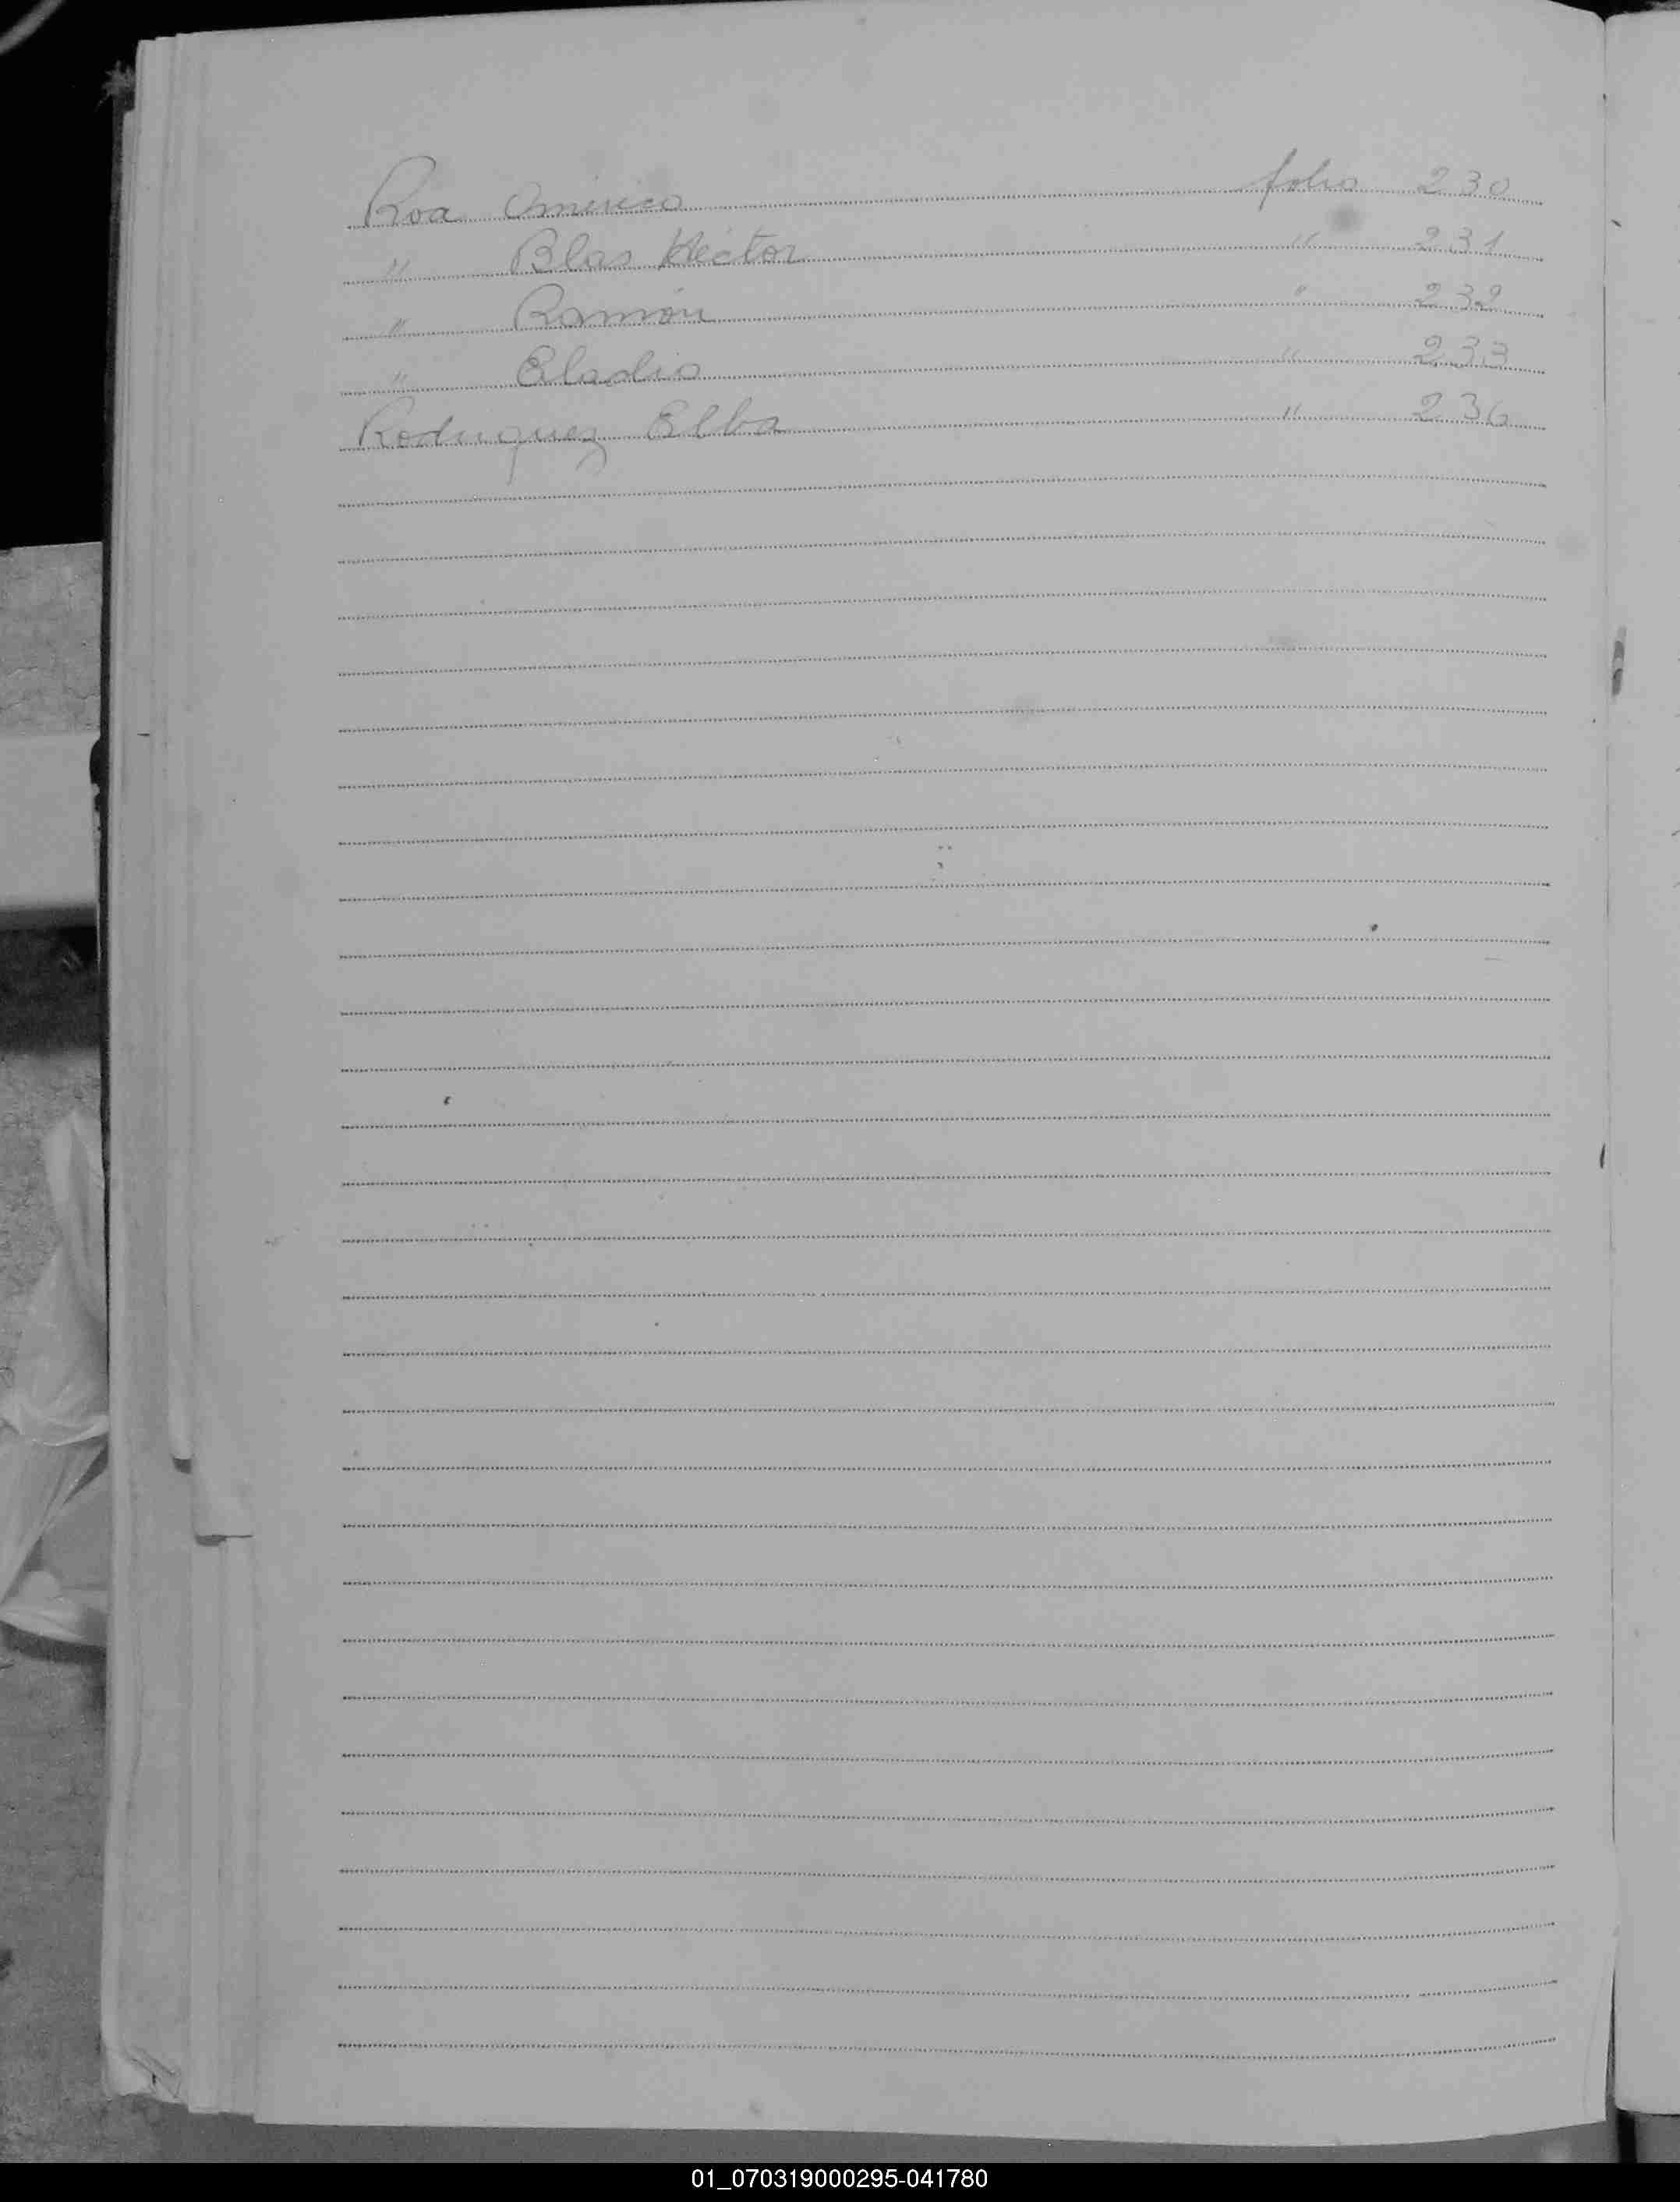 Roa Américo folio 230
" Blas Héctor " 231
" Ramón " 232
" Eladio " 233
Rodriguez Elba " 236
01_070319000295-041780